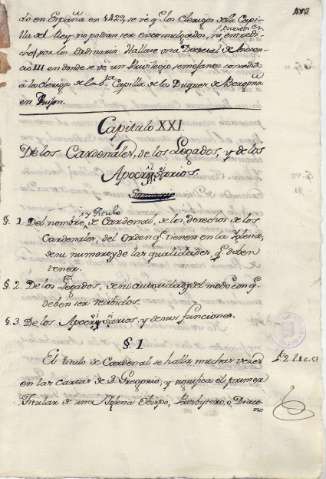 do en España en 1422 se ve q.e los Clerigos de la Capi-
lla del Rey no podian ser excomulgados, ni entredi-
chos por los Ordinarios. Hallase una Decretal de Inocen-
cio III en donde se ve un Privilegio semejante concedido
à los Clerigos de la S.ta Capilla de los Duques de Borgoña
en Dijon.
Capitulo XXI
De los Cardenales, de los Legados, y de los
Apocrisarios.
Summario
§. 1. Del nombre, y Titulo de Cardenal, de los derechos de los
Cardenales, del Orden q.e tienen en la Iglesia,
de su numero y de las qualidades q.e deben
tener.
§. 2. De los Legados, de su autoridad y del modo con q.e
deben ser recibidos.
§. 3. De los Apocrisarios, y de sus funciones.
§ 1
El titulo de Cardenal se halla muchas veces
en las cartas de S. Gregorio, y significa el primer
Titular de una Iglesia Obispo, Presbytero, o Diaco-
no